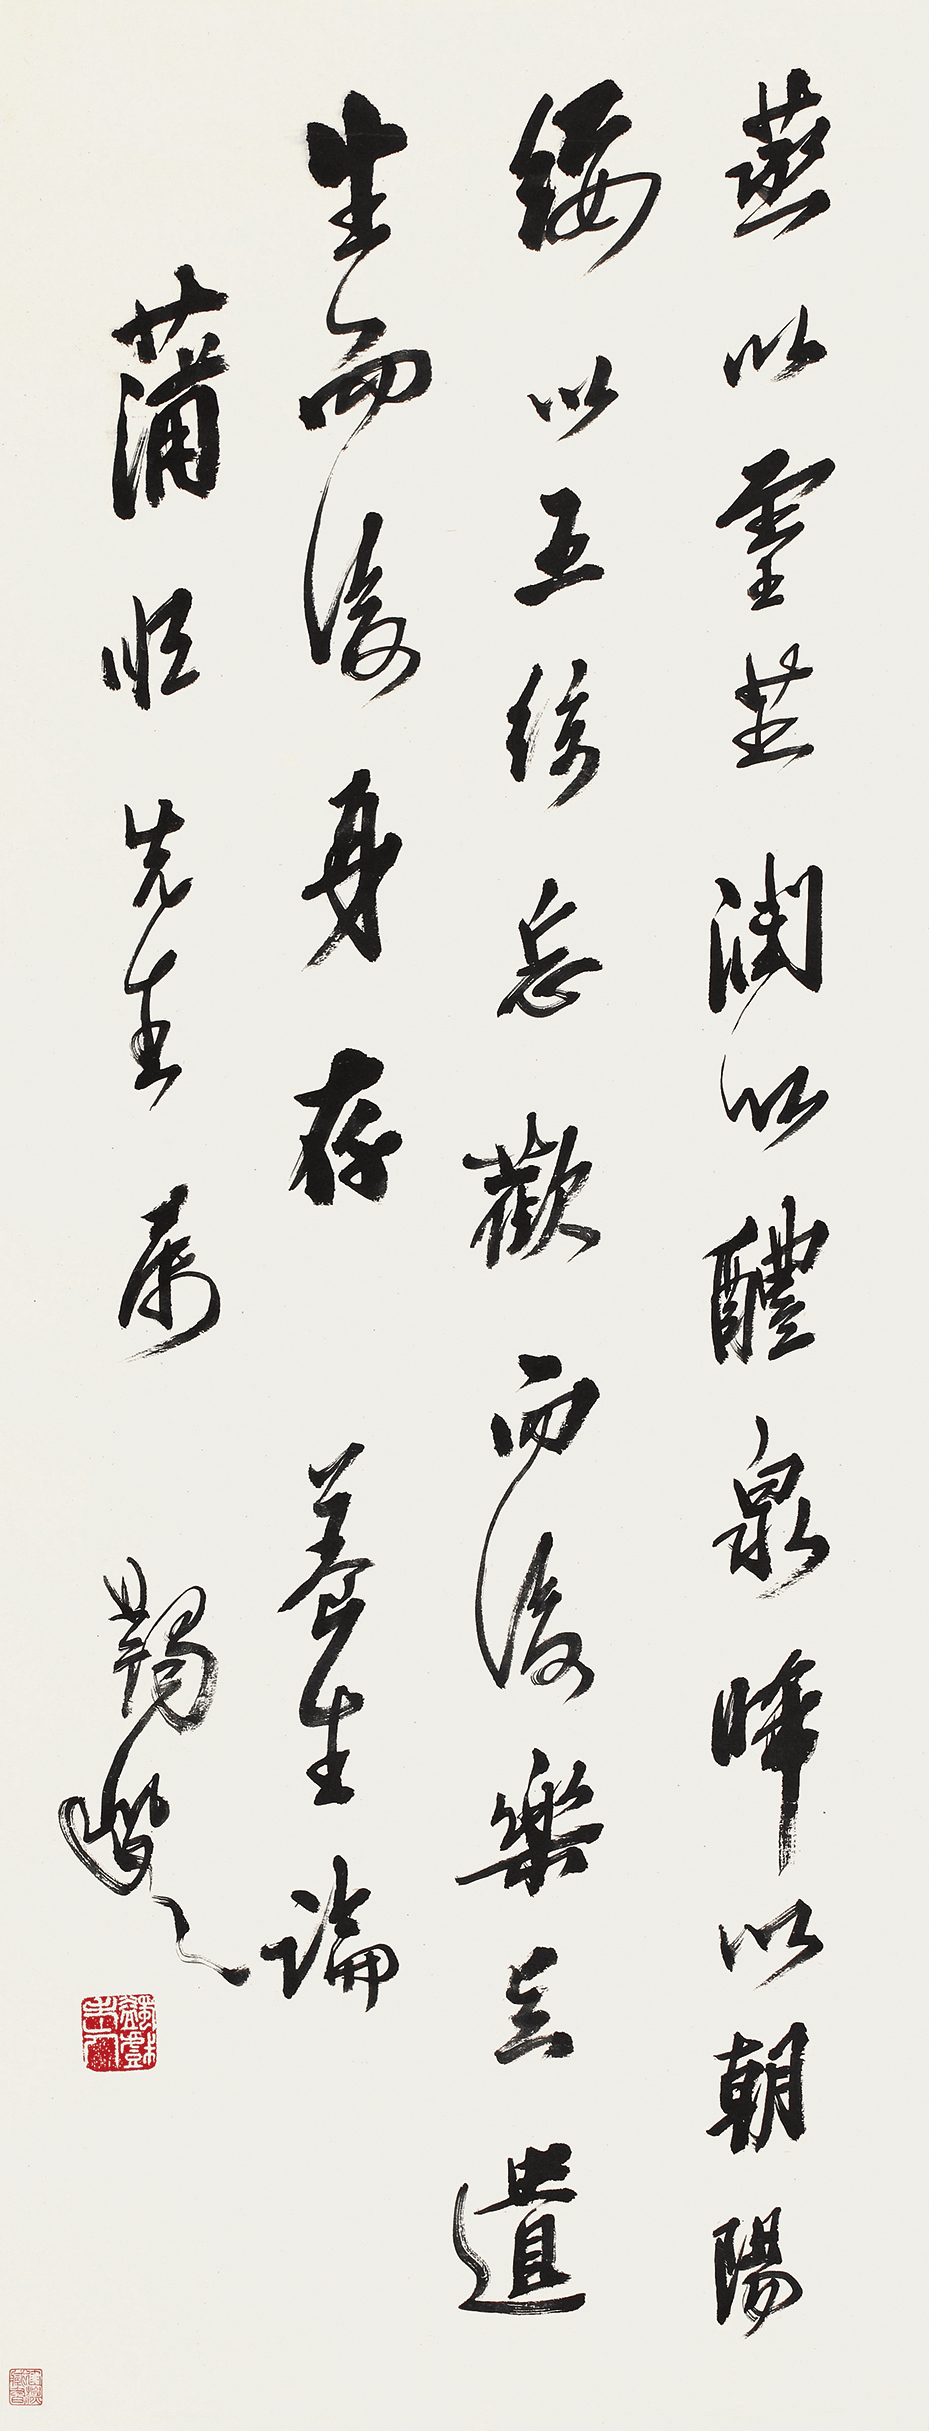 蒸以靈芝潤以醴泉晞以朝陽
綏以五絃忘歡而後樂足遺
生而後身存 養生論
蒲恒先生屬 蠲叟
蠲戲老人